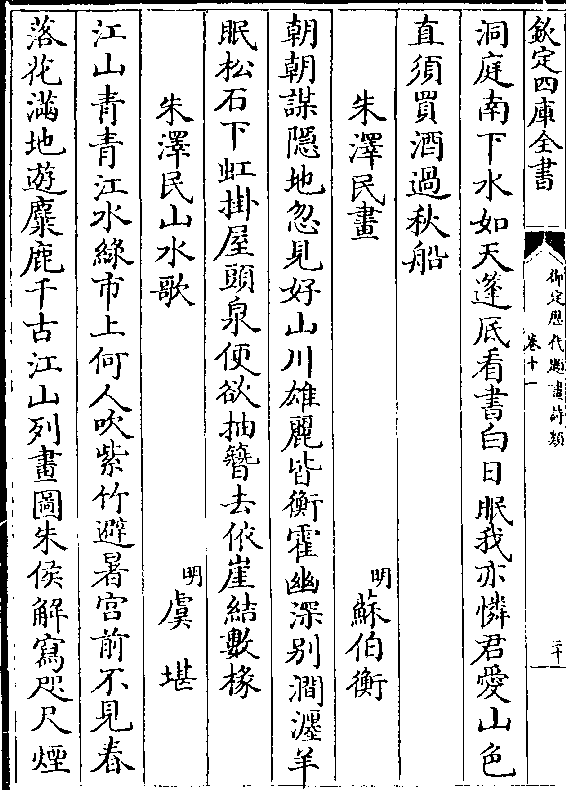 欽定四庫全書
御定歷代題畫詩類
卷十一
二十
洞庭南下水如天蓬底看書白日眠我亦憐君愛山色
直須買酒過秋船
朱澤民畫 明 蘇伯衡
朝朝謀隠地忽見好山川雄麗皆衡霍幽深别澗瀍羊
眠松石下虹掛屋頭泉便欲抽簪去依崖結數椽
朱澤民山水歌 明 虞堪
江山青青江水綠市上何人吹紫竹避暑宫前不見春
落花滿地遊麋鹿千古江山列畫圖朱侯解寫咫尺煙